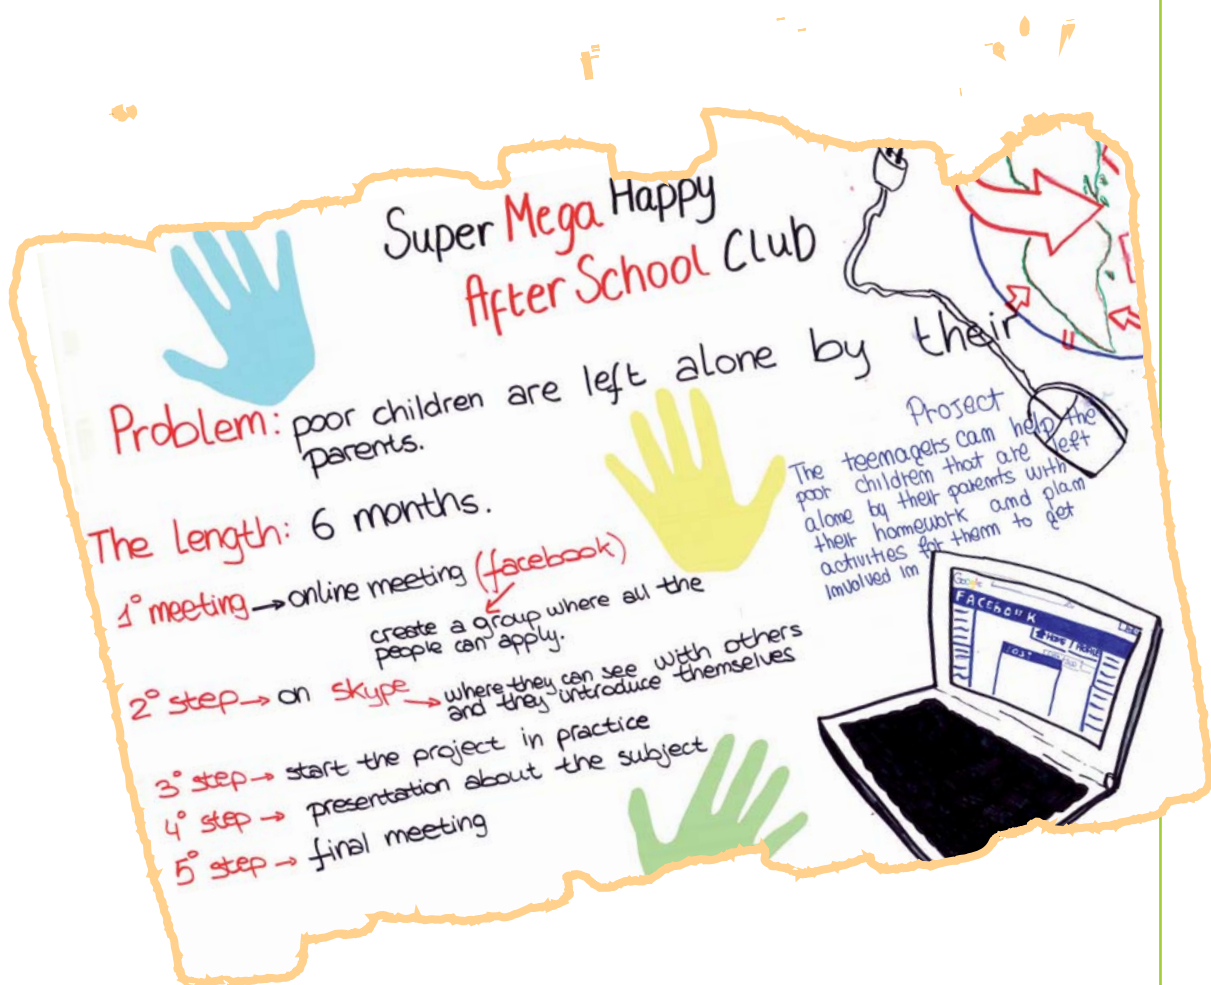 Super Mega Happy
After School Club
Problem: poor children are left alone by their
parents.
The length: 6 months.
1° meeting → online meeting (facebook)
create a group where all the
people can apply.
2° step → on skype → where they can see with others
and they untroduce themselves
3° step → start the project in practice
4° step → presentation about the subject
5° step → final meeting
Project
The teemagers cam help the
poor childrem that are left
alome by their paremts with
their homework amd plam
activities for them to get
imvolved im
Google
FACEbOOK
HOME